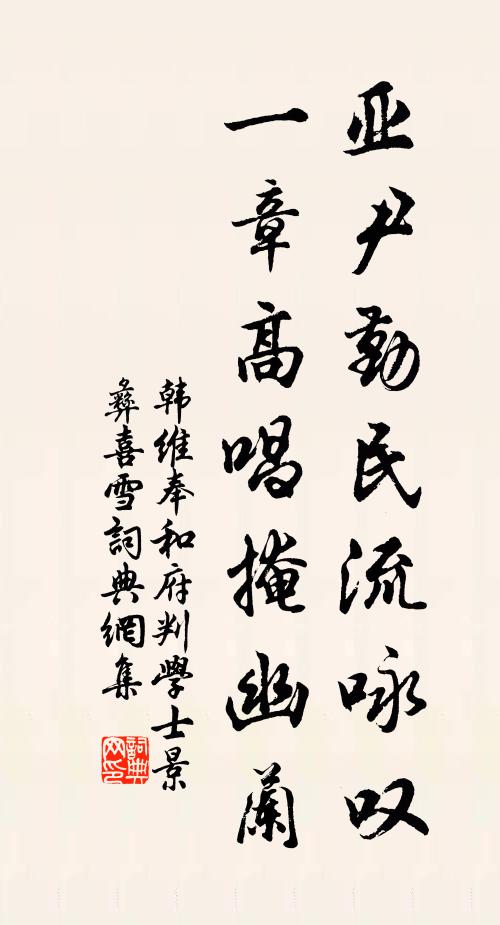 亚尹勤民流咏叹
一章高唱掩幽兰
韩维奉和府判學士景
彝喜雪詞典網集
詞典网印